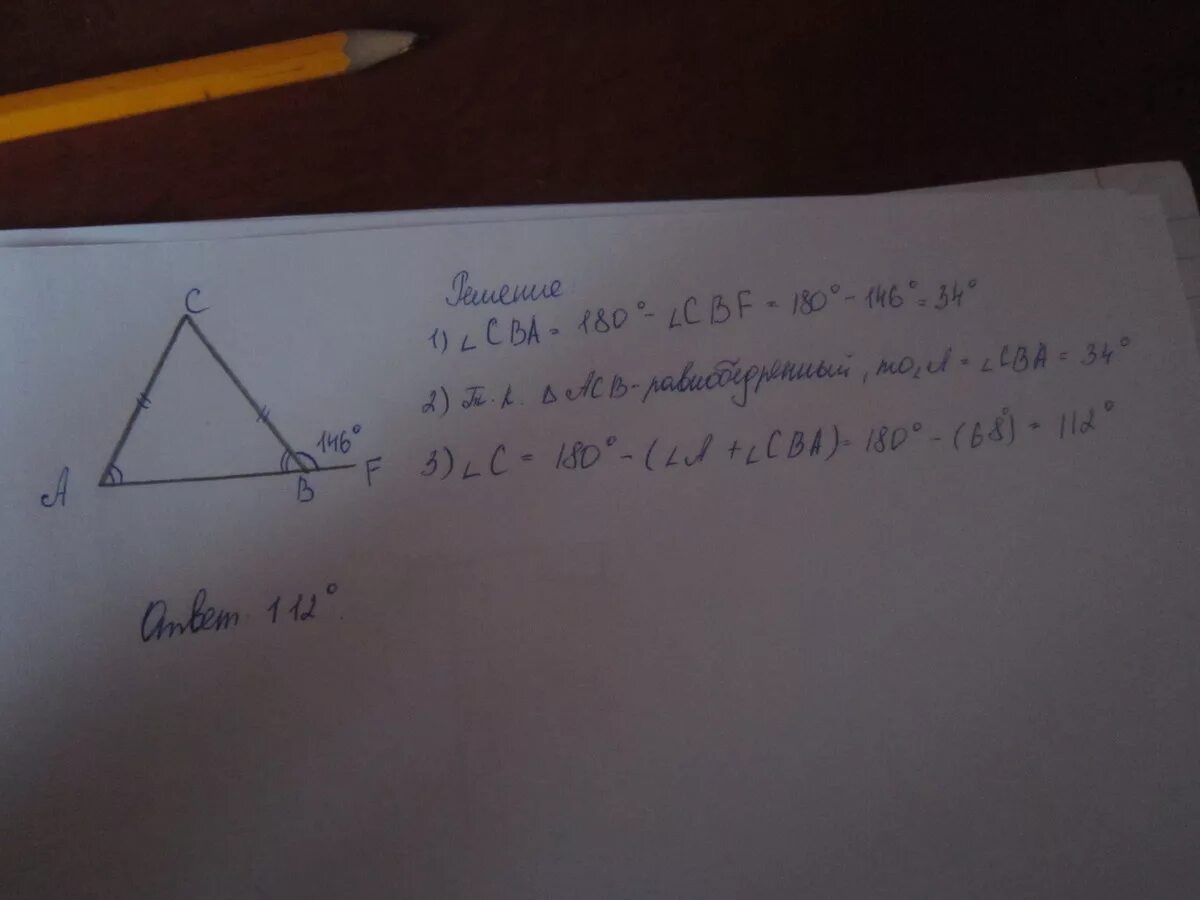 C
A
B
F
146°
Решение
1) ∠CBA = 180° - ∠CBF = 180° - 146° = 34°
2) Т.к. △ ACB - равнобедренный, то ∠A = ∠CBA = 34°
3) ∠C = 180° - (∠A + ∠CBA) = 180° - (68°) = 112°
Ответ. 112°.